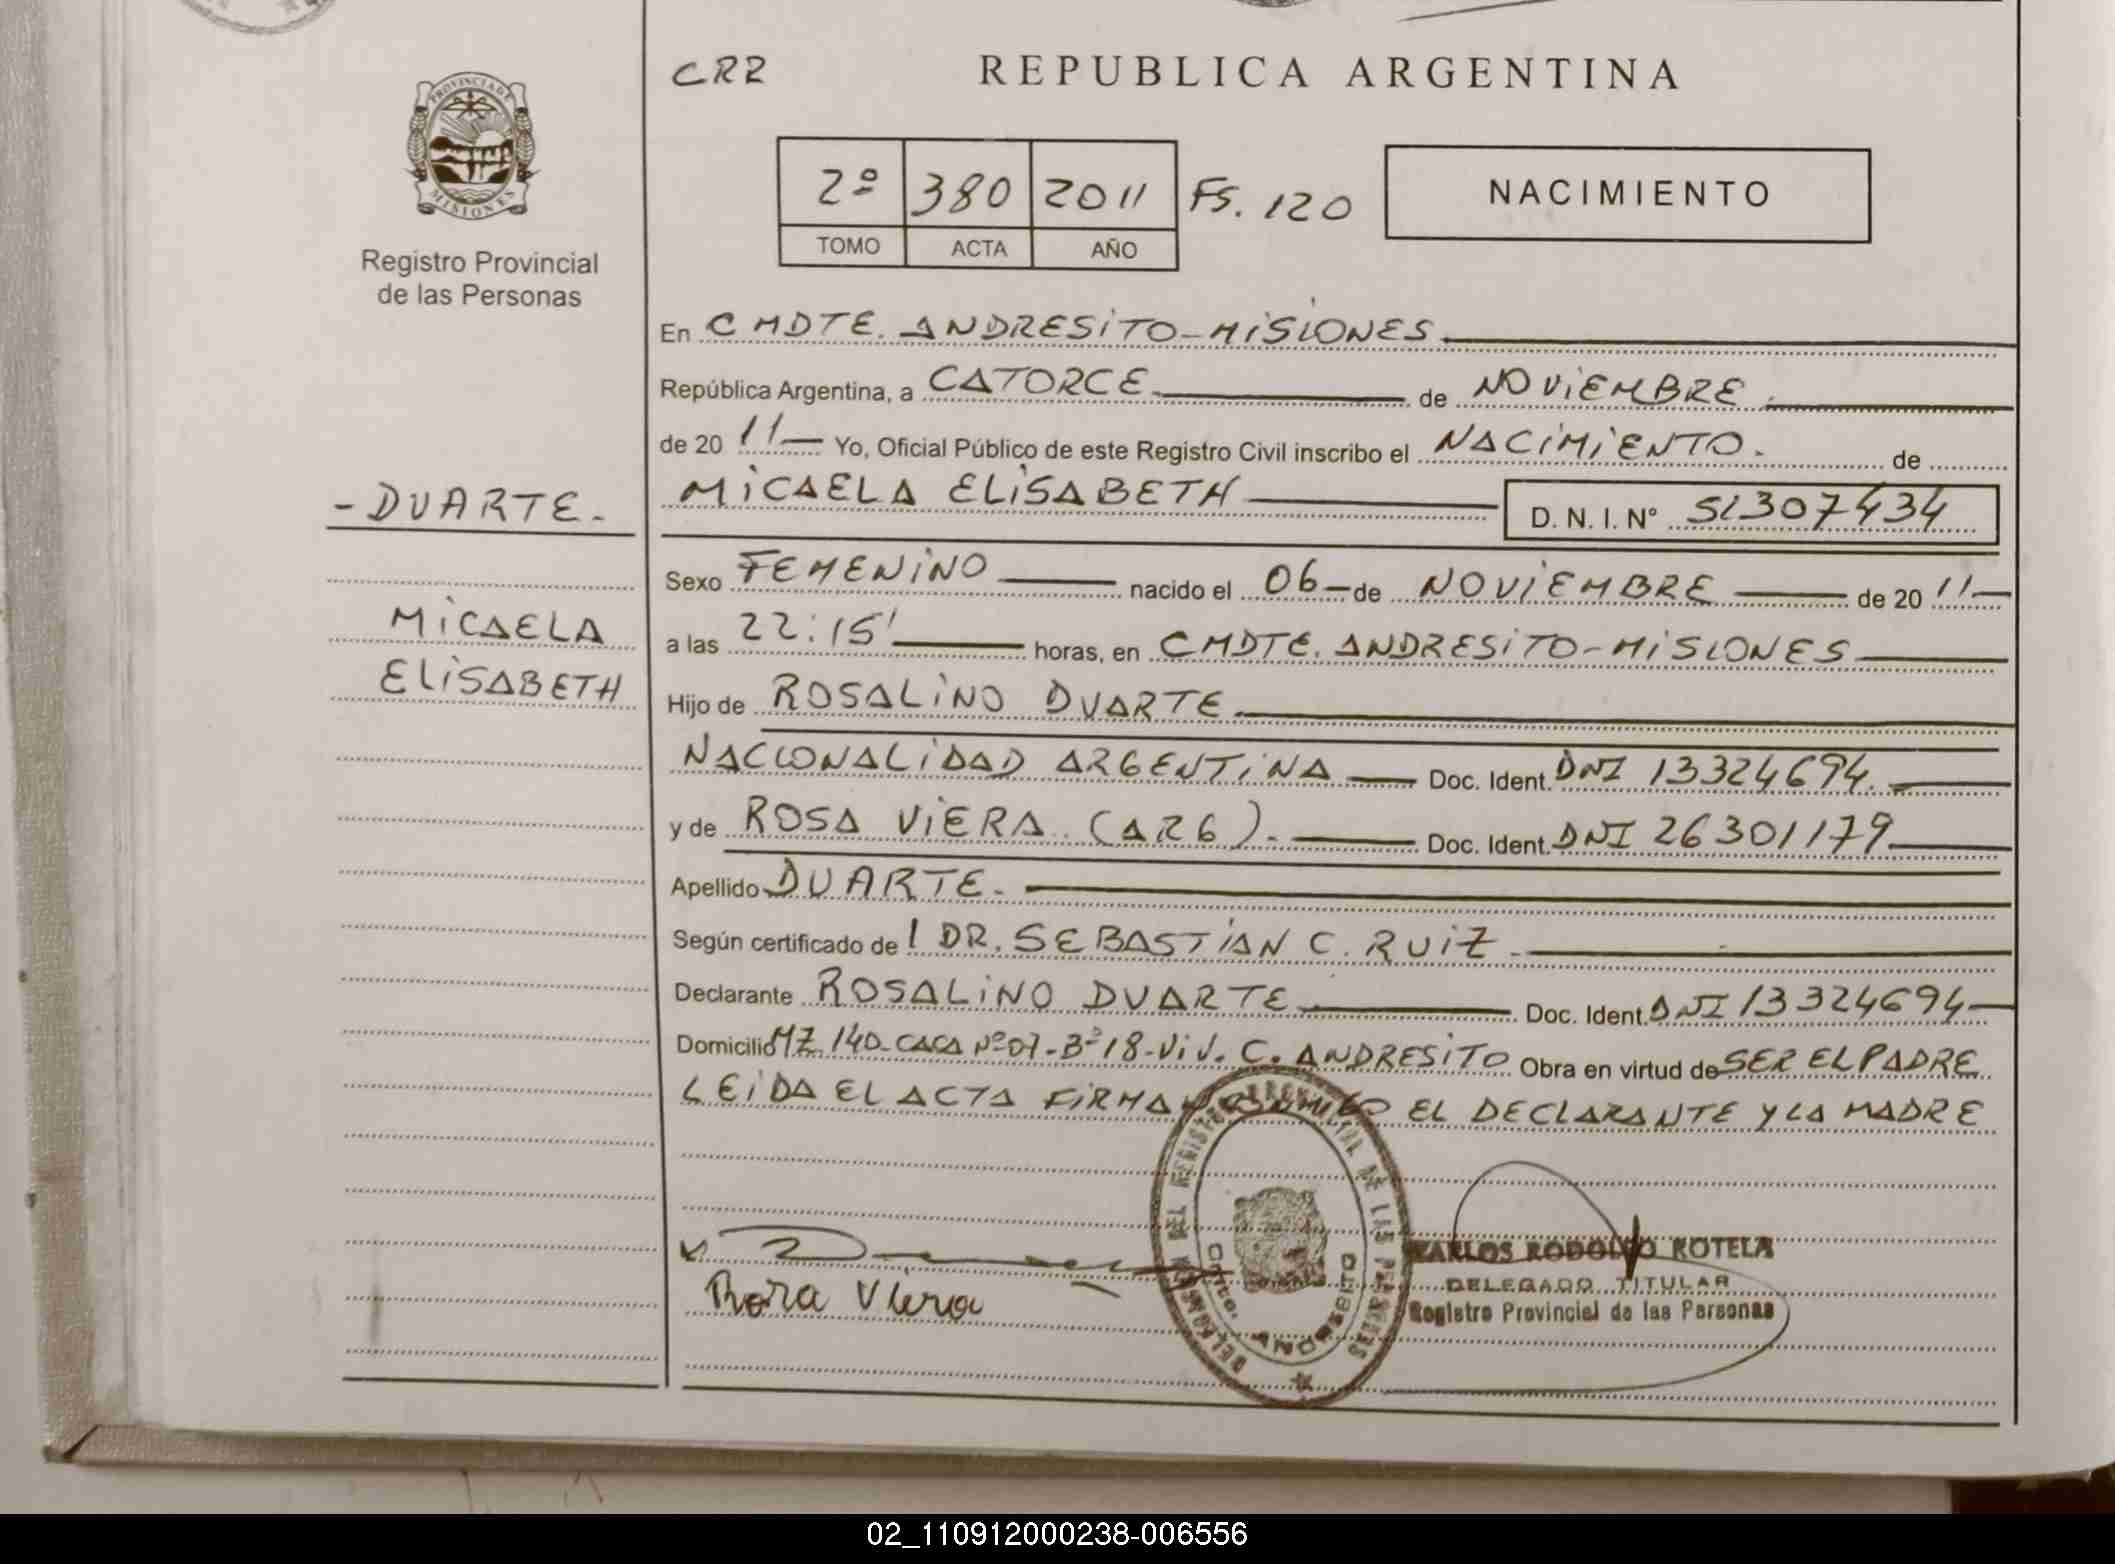 PROVINCIA DE
MISIONES
Registro Provincial
de las Personas
- DUARTE.
MICAELA
ELISABETH
CRR
REPUBLICA ARGENTINA
2º 380 2011 Fs. 120
TOMO ACTA AÑO
NACIMIENTO
En CMDTE. ANDRESITO-MISIONES
República Argentina, a CATORCE de NOVIEMBRE
de 20 11 Yo, Oficial Público de este Registro Civil inscribo el NACIMIENTO. de
MICAELA ELISABETH D. N. I. N° 51307434
Sexo FEMENINO nacido el 06 de NOVIEMBRE de 20 11
a las 22:15' horas, en CMDTE. ANDRESITO-MISIONES
Hijo de ROSALINO DUARTE
NACIONALIDAD ARGENTINA Doc. Ident. DNI 13324694.
y de ROSA VIERA (ARG). Doc. Ident. DNI 26301179
Apellido DUARTE.
Según certificado de l DR. SEBASTIAN C. RUIZ.
Declarante ROSALINO DUARTE Doc. Ident. DNI 13324694
Domicilio MZ. 140-CASA Nº07-Bº18-VIV. C. ANDRESITO Obra en virtud de SER EL PADRE
LEIDA EL ACTA FIRMAN CONMIGO EL DECLARANTE Y LA MADRE
Rosa Viera
DEL REGISTRO PROVINCIAL DE LAS PERSONAS
Cmte. ANDRESITO
CARLOS RODOLFO ROTELA
DELEGADO TITULAR
Registro Provincial de las Personas
02_110912000238-006556